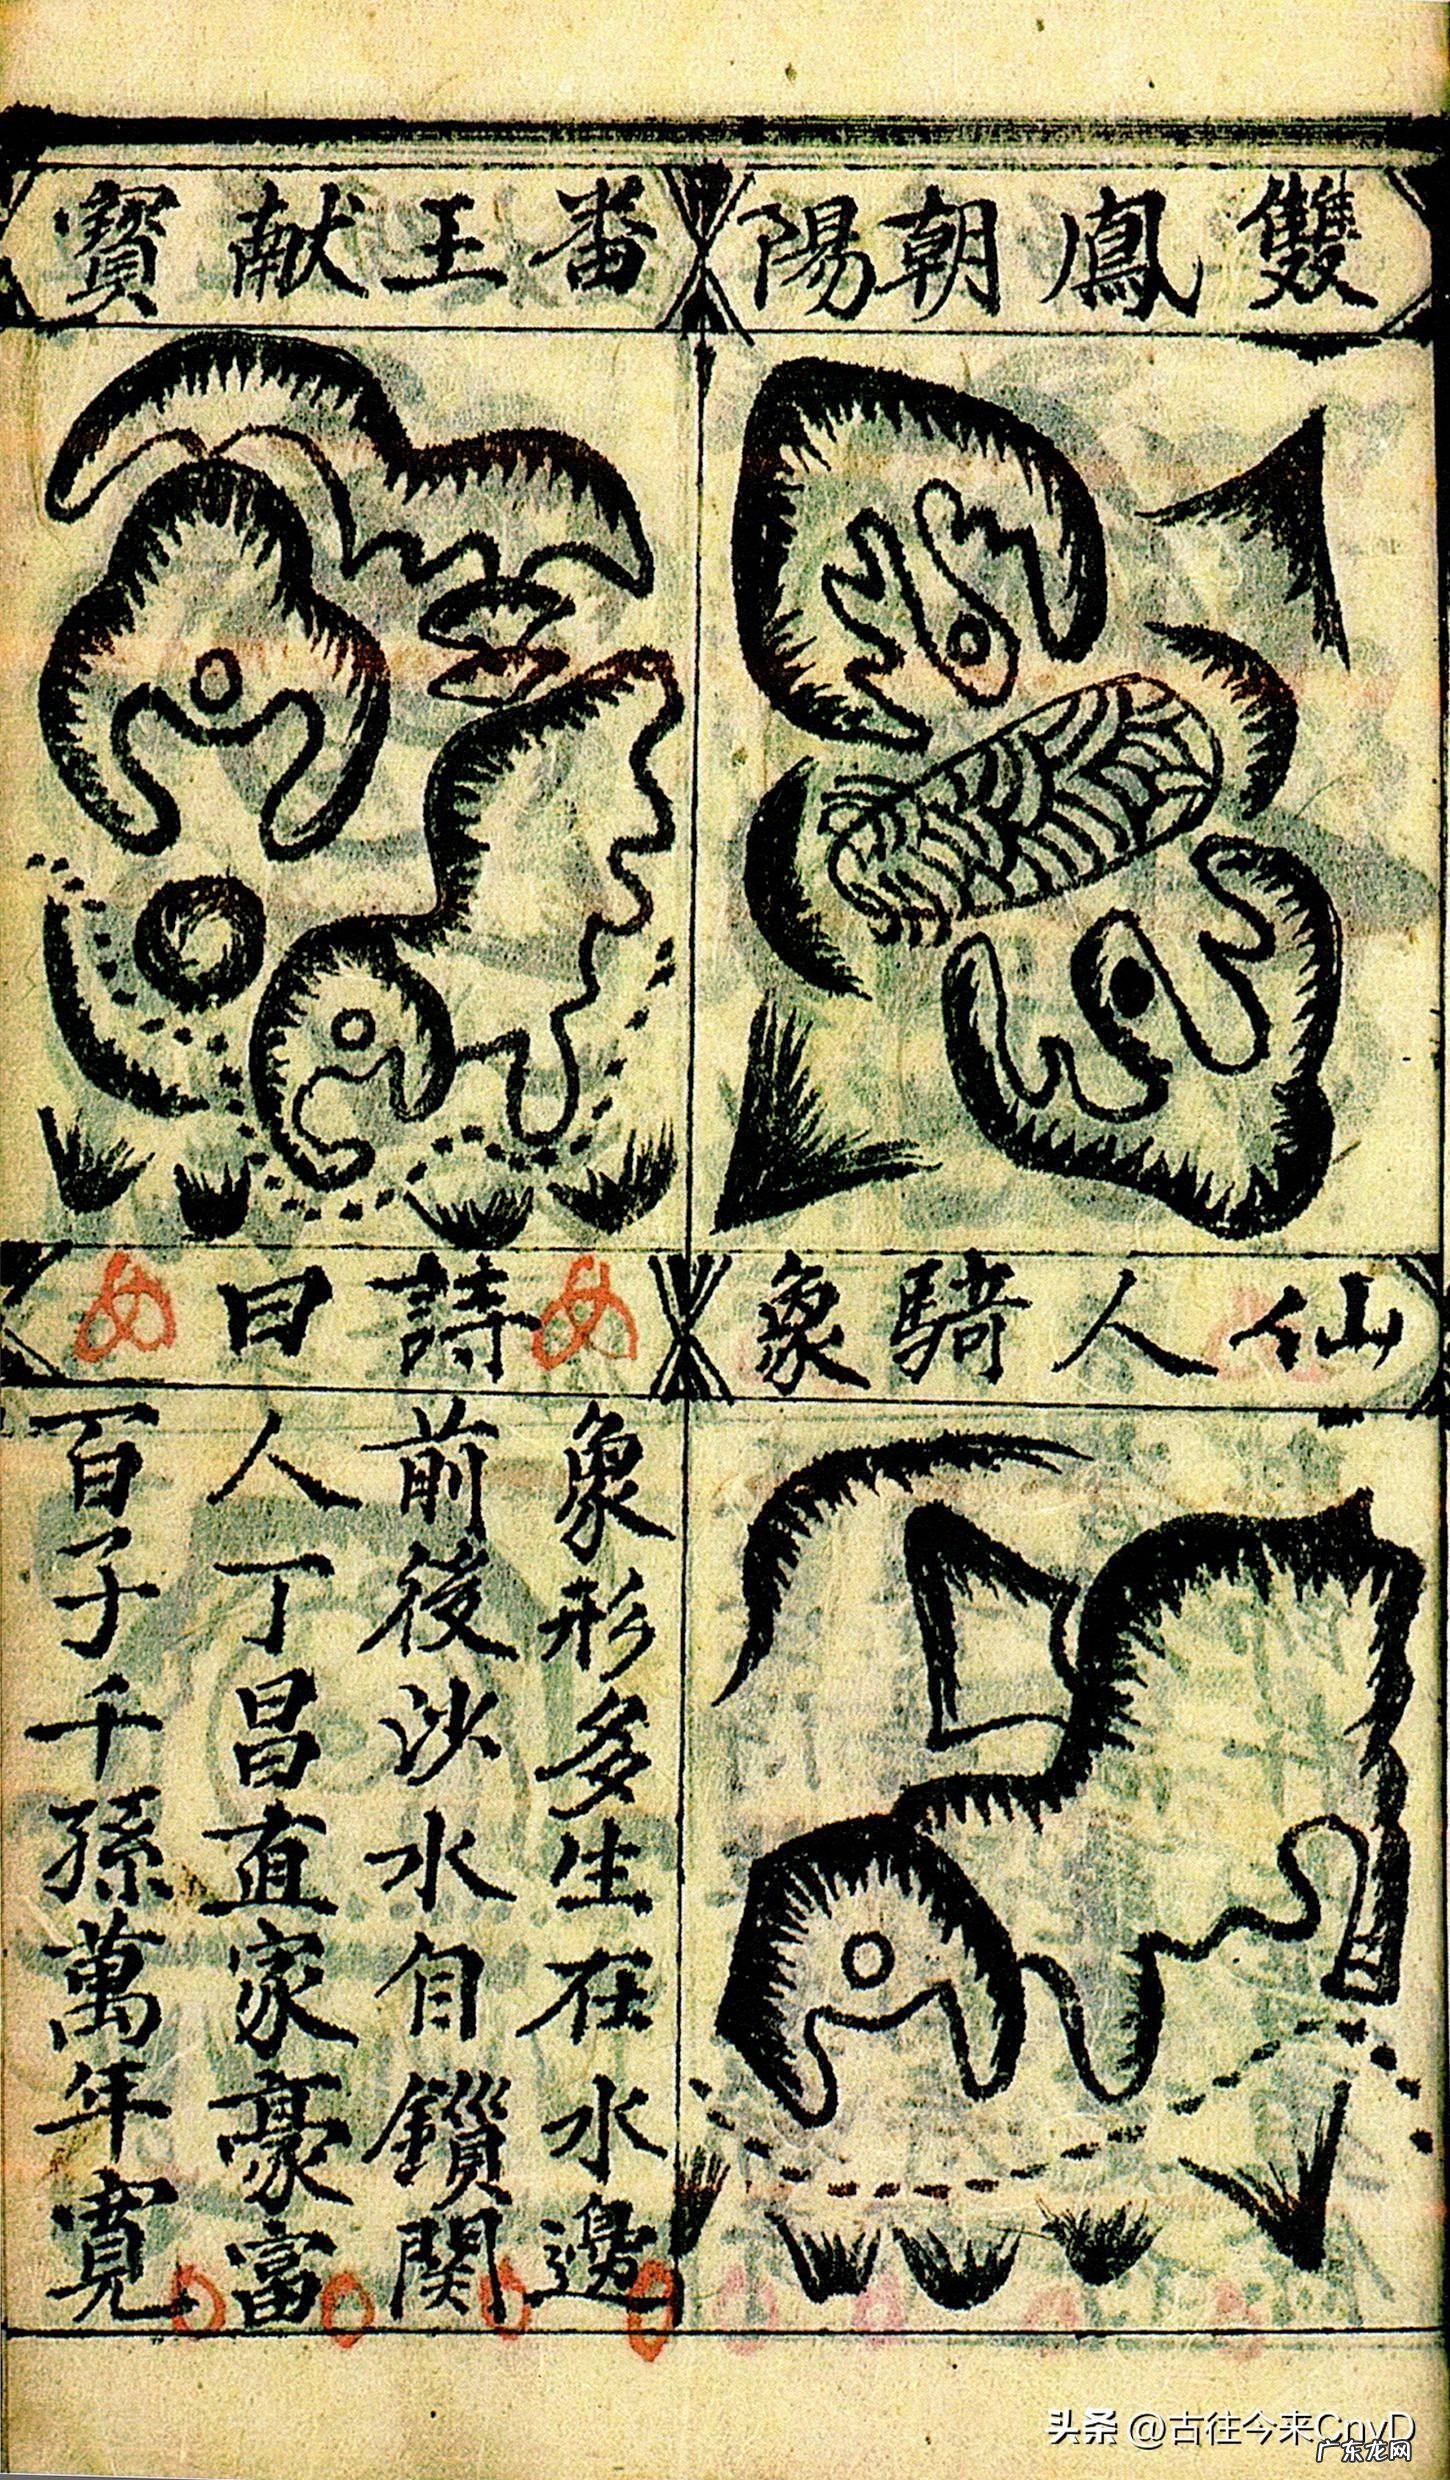 雙鳳朝陽
番王献寶
仙人騎象
詩曰
象形多生在水邊
前後沙水自鎖関
人丁昌直家豪富
百子千孫萬年寛
头条 @古往今来CnyD
广东龙网